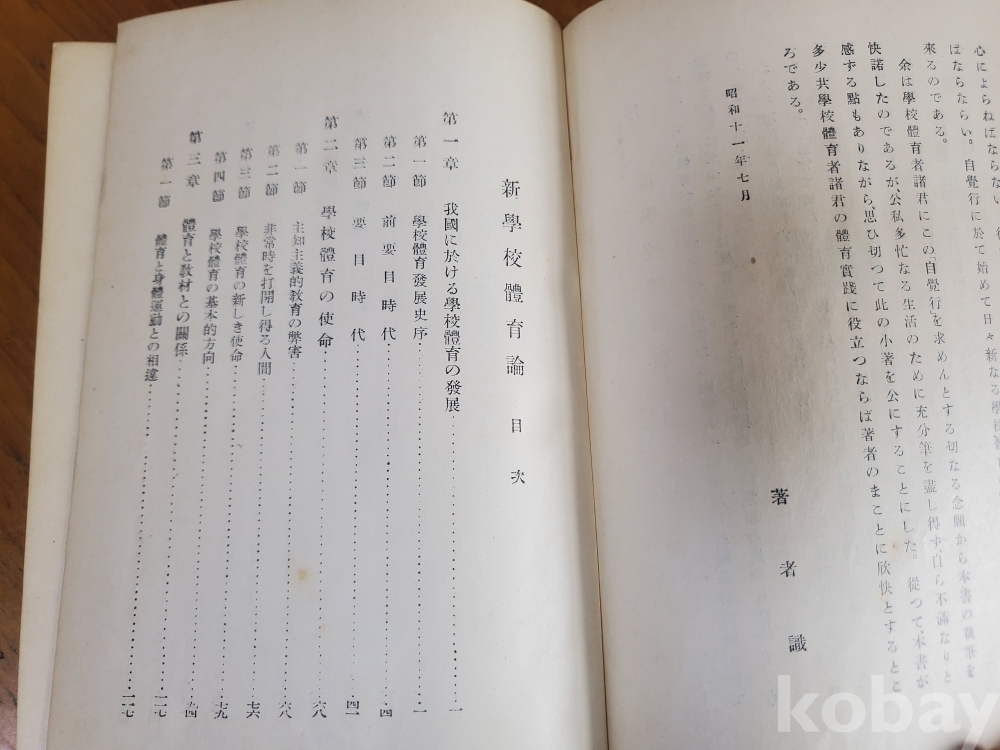 ばならない。自覺行に於て始めて日々新なる學校體
來るのである。
余は學校體育者諸君にこの「自覺行」を求めんとする切なる念願から本書の執筆を
快諾したのであるが、公私多忙なる生活のために充分筆を盡し得ず、自ら不滿なりと
感ずる點もありながら、思ひ切つて此の小著を公にすることにした。從つて、本書が
多少共學校體育者諸君の體育實踐に役立つならば著者のまことに欣快とするとこ
ろである。
昭和十一年七月
著者識
新學校體育論 目次
第一章 我國に於ける學校體育の發展……一
第一節 學校體育發展史序……一
第二節 前要目時代……四
第三節 要目時代……四一
第二章 學校體育の使命……六八
第一節 主知主義的敎育の弊害……六八
第二節 非常時を打開し得る人間……七六
第三節 學校體育の新しき使命……七九
第四節 學校體育の基本的方向……九四
第三章 體育と敎材との關係……一一七
第一節 體育と身體運動との相違……一一七
kobay